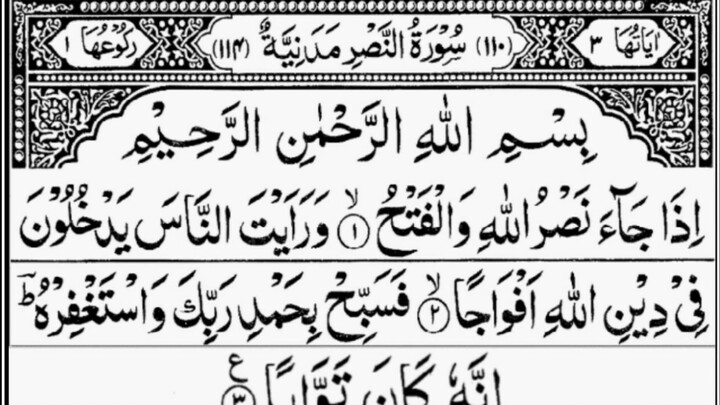 اٰيَاتُهَا ٣ (١١٠) سُوْرَةُ النَّصْرِ مَدَنِيَّةٌ (١١٤) رُكُوْعُهَا ١
بِسْمِ اللهِ الرَّحْمٰنِ الرَّحِيْمِ
اِذَا جَآءَ نَصْرُ اللهِ وَالْفَتْحُ ۙ﴿١﴾ وَرَاَيْتَ النَّاسَ يَدْخُلُوْنَ
فِيْ دِيْنِ اللهِ اَفْوَاجًا ۙ﴿٢﴾ فَسَبِّحْ بِحَمْدِ رَبِّكَ وَاسْتَغْفِرْهُ ؕ
اِنَّهٗ كَانَ تَوَّابًا ﴿٣﴾ ع